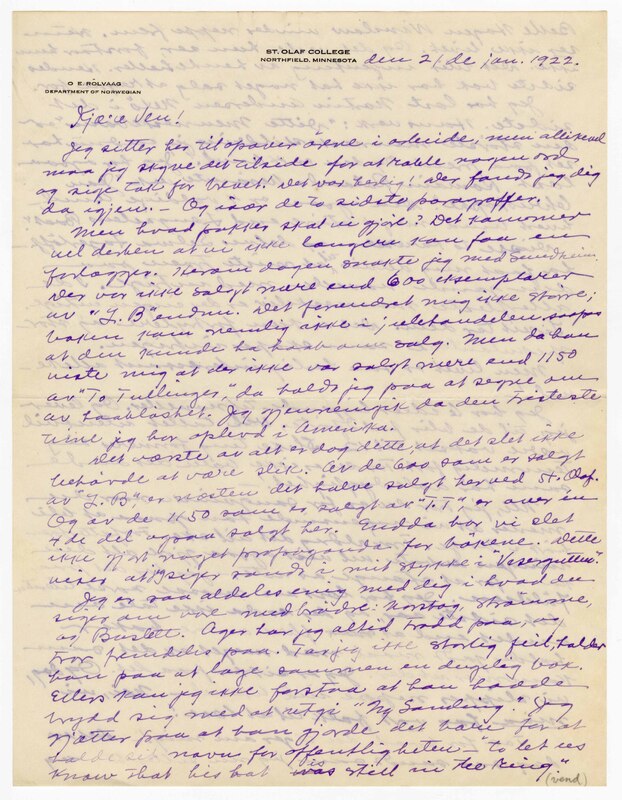 ST. OLAF COLLEGE
NORTHFIELD, MINNESOTA
den 21de jan. 1922.
O. E. RÖLVAAG
DEPARTMENT OF NORWEGIAN
Kjære Ven!
Jeg sitter her til opover örene i arbeide, men allikevel
maa jeg skyve det tilside for at rable nogen ord
og sige tak for brevet! Det var herlig! Der fandt jeg dig
da igjen. — Og især de to sidste paragraffer.
Men hvad pokker skal vi gjöre? Det kommer
vel derhen at vi ikke længere kan faa en
forlægger. Herom dagen snakte jeg med Sundheim.
Der var ikke solgt mere end 600 eksemplarer
av "L. B" endnu. Det forundret mig ikke större;
boken kom nemlig ikke i julehandelen saapas
at den kunde ha haab om salg. Men da han
viste mig at der ikke var solgt mere end 1150
av "To Tullinger," da holdt jeg paa at segne om
av haablöshet. Jeg gjennemgik da den tristeste
time jeg har oplevd i Amerika.
Det værste av alt er dog dette, at det slet ikke
behövde at være slik. Av de 600 som er solgt
av "L. B", er næsten det halve solgt her ved St. Olaf.
Og av de 1150 som er solgt av "T. T", er over en
4de del ogsaa solgt her. Endda har vi slet
ikke gjort noget propoganda for bökene. Dette
viser at jeg siger sandt i mit stykke i "Visergutten."
Jeg er saa aldeles enig med dig i hvad du
siger om vore medbrödre: Norstog, Strömme,
og Buslett. Ager har jeg altid trodd paa, og
tror fremdeles paa. Tar jeg ikke storlig feil, holder
han paa at lage sammen en dugelig bok.
Ellers kan jeg ikke forstaa at han hadde
brydd sig med at utgi "Ny Samling." Jeg
gjætter paa at han gjorde det bare for at
holde sit navn for offentligheten — "to let us
know that his hat is still in the ring"
(vend)